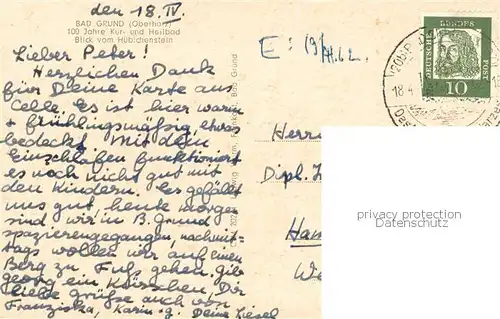 den 18. IV.
BAD GRUND (Oberharz)
100 Jahre Kur- und Heilbad
Blick vom Hübichenstein
Lieber Peter!
Herzlichen Dank
für Deine Karte aus
Celle. Es ist hier warm
+ frühlingsmäßig, etwas
bedeckt. Mit dem
Einschlafen funktioniert
es noch nicht gut mit
den Kindern. Es gefällt
uns gut, heute morgen
sind wir in B. Grund
spazierengegangen, nachmit-
tags wollen wir auf einen
Berg zu Fuß gehen. gib
georg ein Küßchen. Dir
liebe grüße auch von
Franziska, Karin. g. Deine Liesel
E: 19/IV. 62
Herrn
Dipl.
Ham
DEUTSCHE BUNDESPOST
10
18.4.
privacy protection
Datenschutz